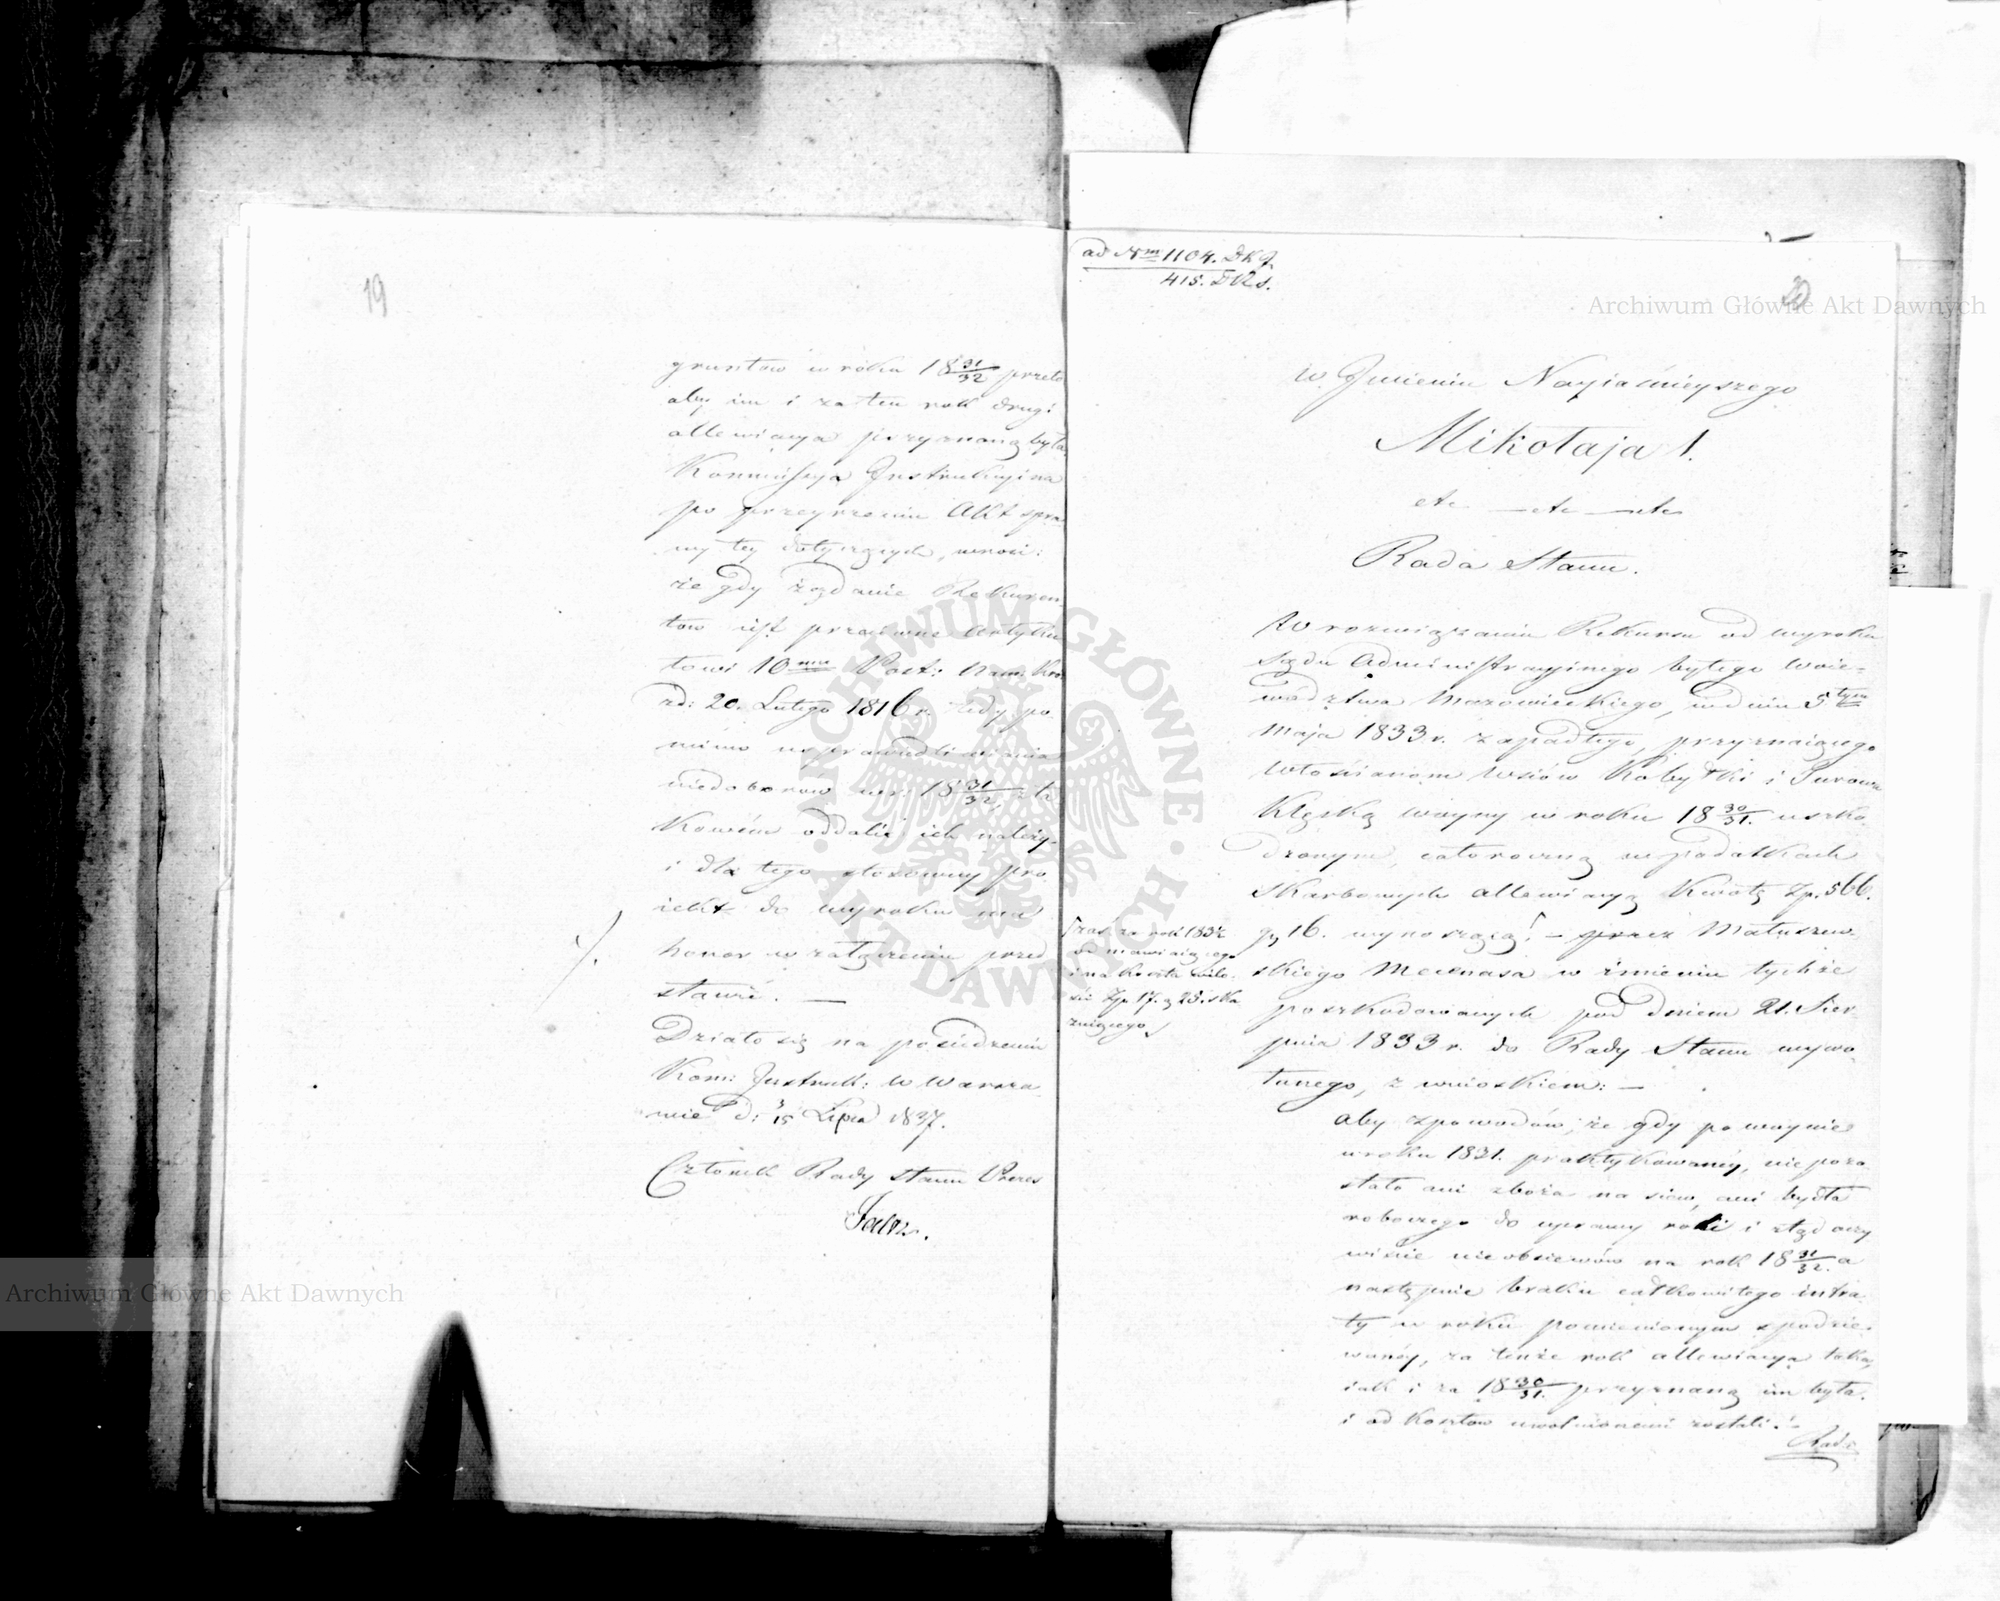 19
gruntów w roku 18 31/32 przeto
aby im i za ten rok drugi
allewiacya przyznaną była.
Kommissya Instrukcyina
po przeyrzeniu Akt spra
wy tey dotyczących, wnosi:
że gdy żądanie Rekuren
tów iest przeciwne Artyku
łowi 10mu Post: Nam: Kró
zd: 20. Lutego 1816 r. tedy po
mimo usprawiedliwienia
niedoborów w r: 18 31/32,
oddalić ich należy
i dla tego stosowny pro
iekt do wyroku ma
honor w załączeniu przed
stawić. —
Działo się na posiedzeniu
Kom: Instruk: w Warsza
wie d: 3/15 Lipca 1837.
Członek Rady Stanu Prezes
ad Nrm 1104. DKJ.
415. DRS.
20
w Imieniu Nayiaśnieyszego
Mikołaja I.
etc — etc — etc
Rada Stanu.
W rozwiązaniu Rekursu od wyroku
Sądu Administracyjnego byłego Woie-
wództwa Mazowieckiego, w dniu 5tym
Maja 1833 r. zapadłego, przyznaiącego
Włościanom Wsiów Kobyłki i
Klęską woyny w roku 18 30/31. uszko-
dzonym, całoroczną w podatkach
Skarbowych allewiacyą Kwotę Zp. 566.
gr 16. wynoszącą; — przez Matuszew-
skiego Mecenasa w imieniu tychże
poszkodowanych pod dniem 21. Sier-
pnia 1833 r. do Rady Stanu wywo-
łanego, z wnioskiem: —
zaś za rok 1832
odmawiaiącego
i na koszta
Zp 17. g 23. ska
zuiącego
aby z powodów, że gdy po woynie
w roku 1831. praktykowaney, nie pozo-
stało ani zboża na siew, ani bydła
roboczego do uprawy roli i ztąd oczy
wiście nieobsiewów na rok 18 31/32. a
następnie braku całkowitego intra-
ty w roku pomienionym spodzie-
waney, za tenże rok allewiacya taka,
iak i za 18 30/31. przyznaną im była.
i od kosztów uwolnionemi zostali. —
Rada
Archiwum Główne Akt Dawnych
Archiwum Główne Akt Dawnych
ARCHIWUM GŁÓWNE · AKT DAWNYCH ·